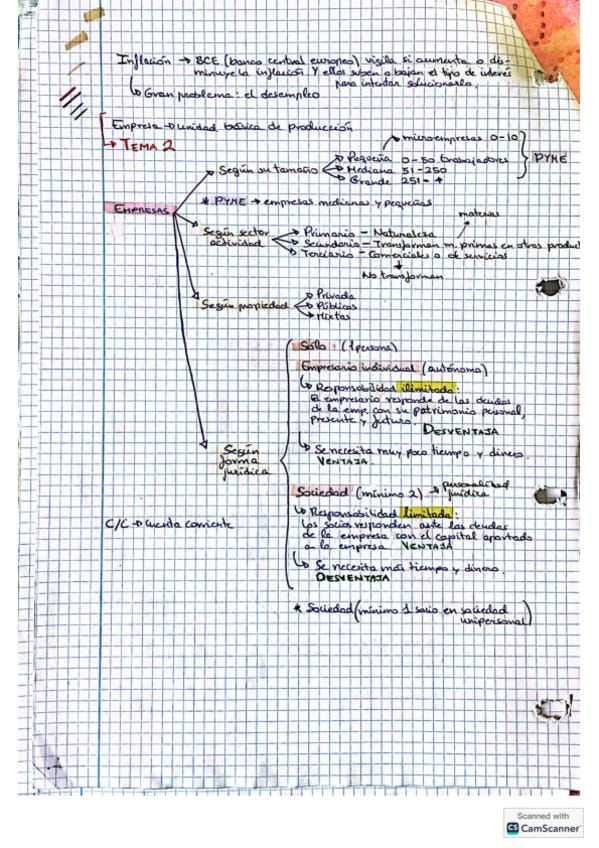 Inflación → BCE (banco central europeo) vigila si aumenta o dis-
minuye la inflación. Y ellos suben o bajan el tipo de interés
para intentar solucionarlo.
↳ Gran problema: el desempleo
Empresa → unidad básica de producción
↳ TEMA 2
microempresas 0-10
Según su tamaño
Pequeña 0-50 trabajadores
Mediana 51-250
Grande 251-+
PYME
* PYME → empresas medianas y pequeñas
EMPRESAS
materias
Según sector actividad
Primario - Naturaleza
Secundario - Transforman m. primas en otras produc
Terciario - Comerciales o de servicios
No transforman
Según propiedad
Privada
Públicas
Mixtas
Sólo (1 persona)
Empresario individual (autónomo)
↳ Responsabilidad ilimitada:
El empresario responde de las deudas
de la emp. con su patrimonio personal,
presente y futuro. DESVENTAJA
↳ Se necesita muy poco tiempo y dinero.
VENTAJA.
Según
forma
jurídica
Sociedad (mínimo 2) → personalidad
jurídica
↳ Responsabilidad limitada:
Los socios responden ante las deudas
de la empresa con el capital aportado
a la empresa VENTAJA
C/C → cuenta corriente
↳ Se necesita más tiempo y dinero.
DESVENTAJA
* Sociedad (mínimo 1 socio en sociedad
unipersonal)
Scanned with
CS CamScanner